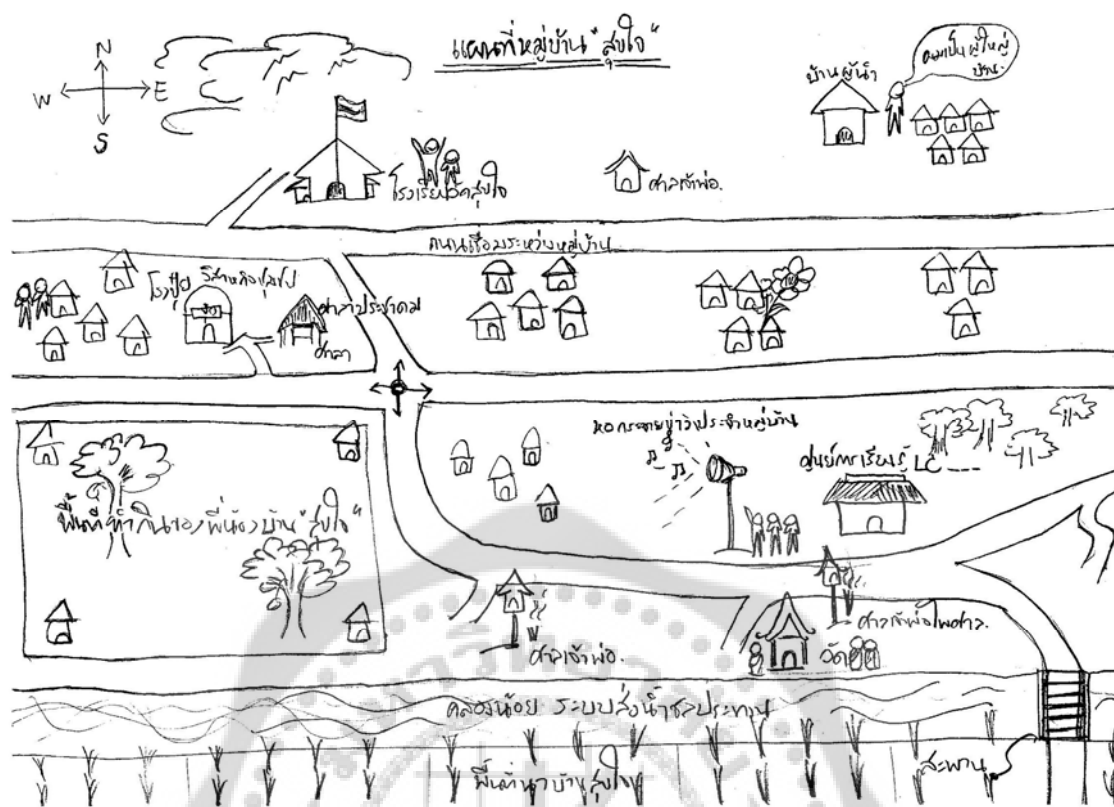 แผนที่หมู่บ้าน "สุขใจ"
N
W E
S
บ้านผู้นำ
ผมเป็นผู้ใหญ่
บ้าน
โรงเรียนวัดสุขใจ
ศาลเจ้าพ่อ.
ถนนเชื่อมระหว่างหมู่บ้าน
โรงปุ๋ย
วิสาหกิจชุมชน
ศาลาประชาคม
ศาลา
หอกระจายข่าวประจำหมู่บ้าน
ศูนย์การเรียนรู้ LC
พื้นที่ทำกินของพี่น้องบ้าน "สุขใจ"
ศาลเจ้าพ่อ.
วัด
ศาลเจ้าพ่อไพศาล.
คลองน้อย ระบบส่งน้ำชลประทาน
พื้นที่นาบ้านสุขใจ
สะพาน